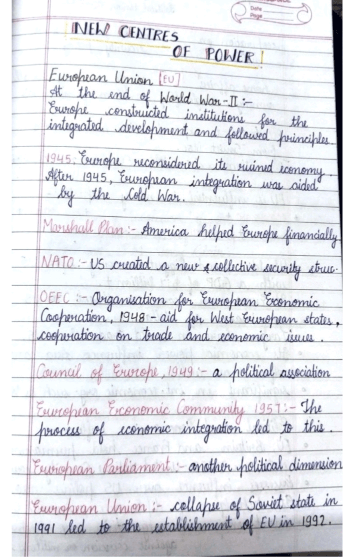 Date
Page
NEW CENTRES
OF POWER
European Union [EU]
At the end of World War-II :-
Europe constructed institutions for the
integrated development and followed principles
1945: Europe reconsidered its ruined economy.
After 1945, European integration was aided
by the Cold War.
Marshall Plan :- America helped Europe financially
NATO :- US created a new & collective security struc-
OEEC :- Organisation for European Economic
Cooperation, 1948 - aid for West European states,
cooperation on trade and economic issues.
Council of Europe, 1949 :- a political association
European Economic Community 1957 :- The
process of economic integration led to this.
European Parliament :- another political dimension
European Union :- collapse of Soviet state in
1991 led to the establishment of EU in 1992.